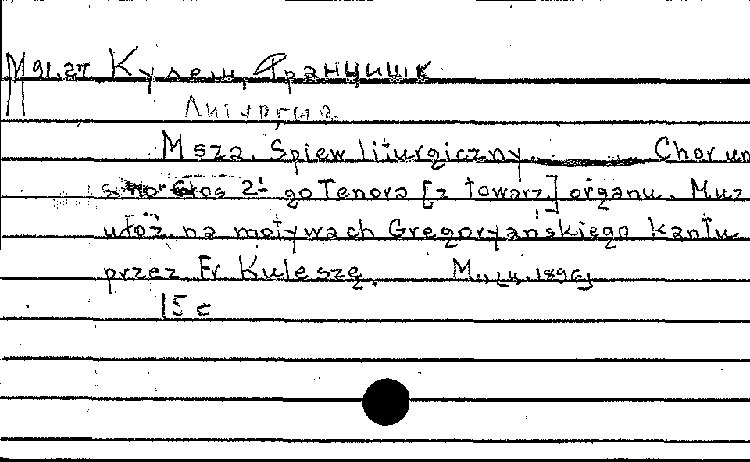 М 91.27 Кулеш, Францишк
Литургия
Msza. Spiew liturgiczny. Chor un
Głos 2i go Tenora [z towarz.] organu. Muz
ułoż. na motywach Gregoryańskiego kantu
przez Fr. Kuleszę. М., 1896,
15 с